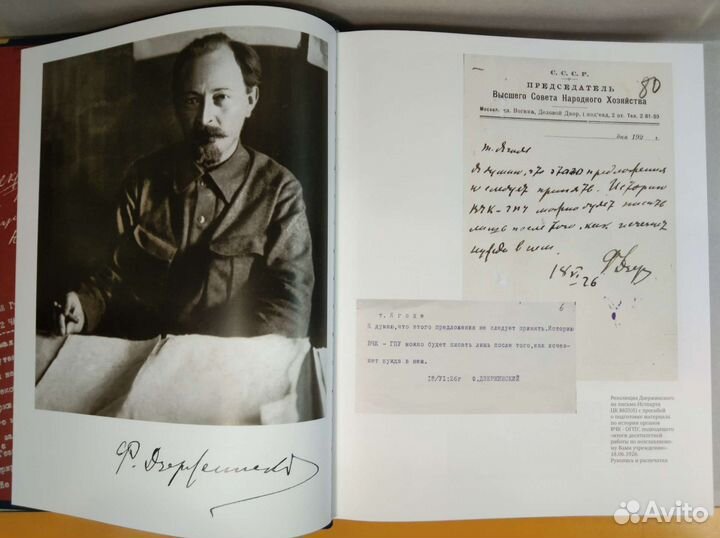 Ф. Дзержинский
С. С. С. Р.
ПРЕДСЕДАТЕЛЬ
Высшего Совета Народного Хозяйства
80
Москва, пл. Ногина, Деловой Двор, 1 подъезд, 2 эт. Тел. 2-61-50
дня 192 г.
т. Ягоде
Я думаю, что этого предложения
не следует принять. Историю
ВЧК-ГПУ можно будет писать
лишь после того, как исчезнет
нужда в нем.
18/VI 26
Ф Дзер
6
т. Ягоде
Я думаю,что этого предложения не следует принять.Историю
ВЧК - ГПУ можно будет писать лишь после того,как исчез-
нет нужда в нем.
18/VI-26г Ф.ДЗЕРЖИНСКИЙ
Резолюция Дзержинского
на письмо Истпарта
ЦК ВКП(б) с просьбой
о подготовке материала
по истории органов
ВЧК - ОГПУ, подводящего
«итоги десятилетней
работы по возглавляемо-
му Вами учреждению»
18.06.1926.
Рукопись и распечатка
Avito